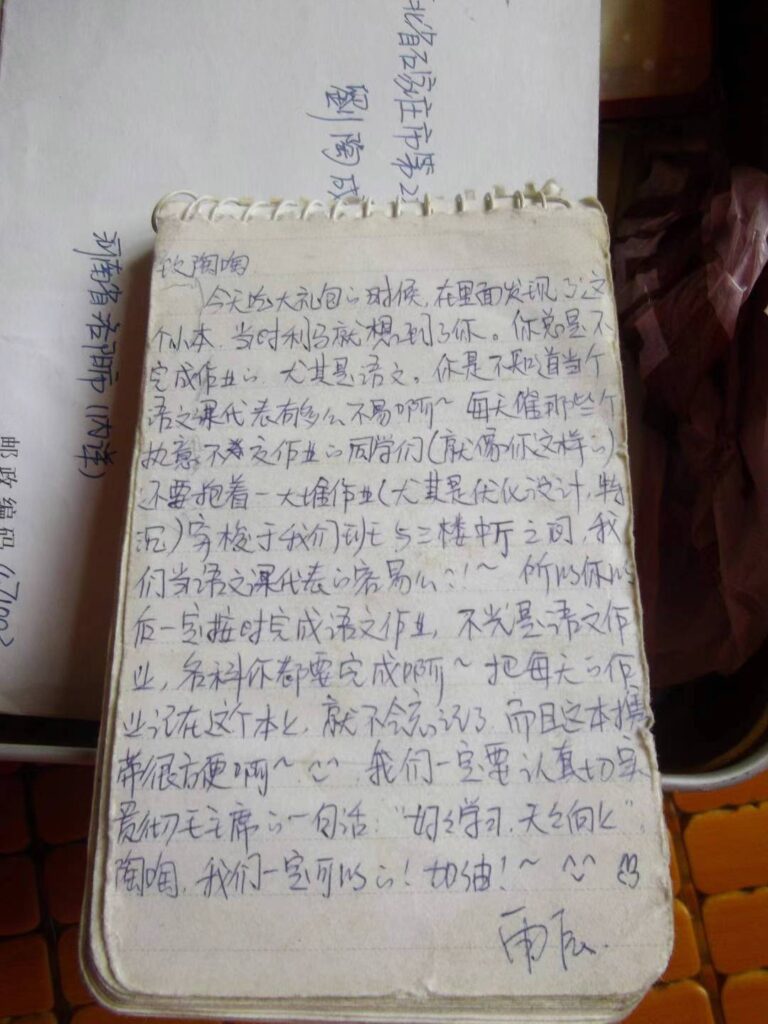 北省石家庄市第2
劉陶成
河南省洛阳市
邮政编码
欧陶陶
今天吃大礼包的时候,在里面发现了这
个小本,当时利马就想到了你。你总是不
完成作业的,尤其是语文。你是不知道当个
语文课代表有多么不易啊~每天催那些个
执意不交作业的同学们(就像你这样的)
还要抱着一大堆作业(尤其是优化设计,特
沉)穿梭于我们班与三楼中厅之间,我
们当语文课代表的容易么!~ 所以你以
后一定按时完成语文作业,不光是语文作
业,各科你都要完成啊~把每天的作
业记在这个本上,就不会忘记了,而且这本携
带很方便啊~ 我们一定要认真切实
贯彻毛主席的一句话:“好好学习,天天向上”,
陶陶,我们一定可以的!加油!~
雨辰.